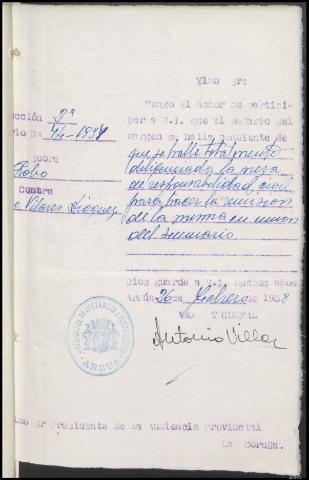 Ylmo Sr:
Tengo el honor de partici-
par a V.I. que el sumario del
margen se halla pendiente de
que se halle totalmente
diligenciada la pieza
de responsabilidad civil
para hacer la remision
de la misma en union
del sumario
cción 2ª
io Nº 44-1937
sobre
Robo
Contra
Vilares Dieguez
Dios guarde a V.I. muchos años
Arzúa 26 de Febrero 1938
AÑO TRIUNFAL
Antonio Villar
JUZGADO DE 1ª INSTANCIA E INSTRUCCION
ARZUA
lmo Sr Presidente de la Audiencia Provincial
La Coruña.